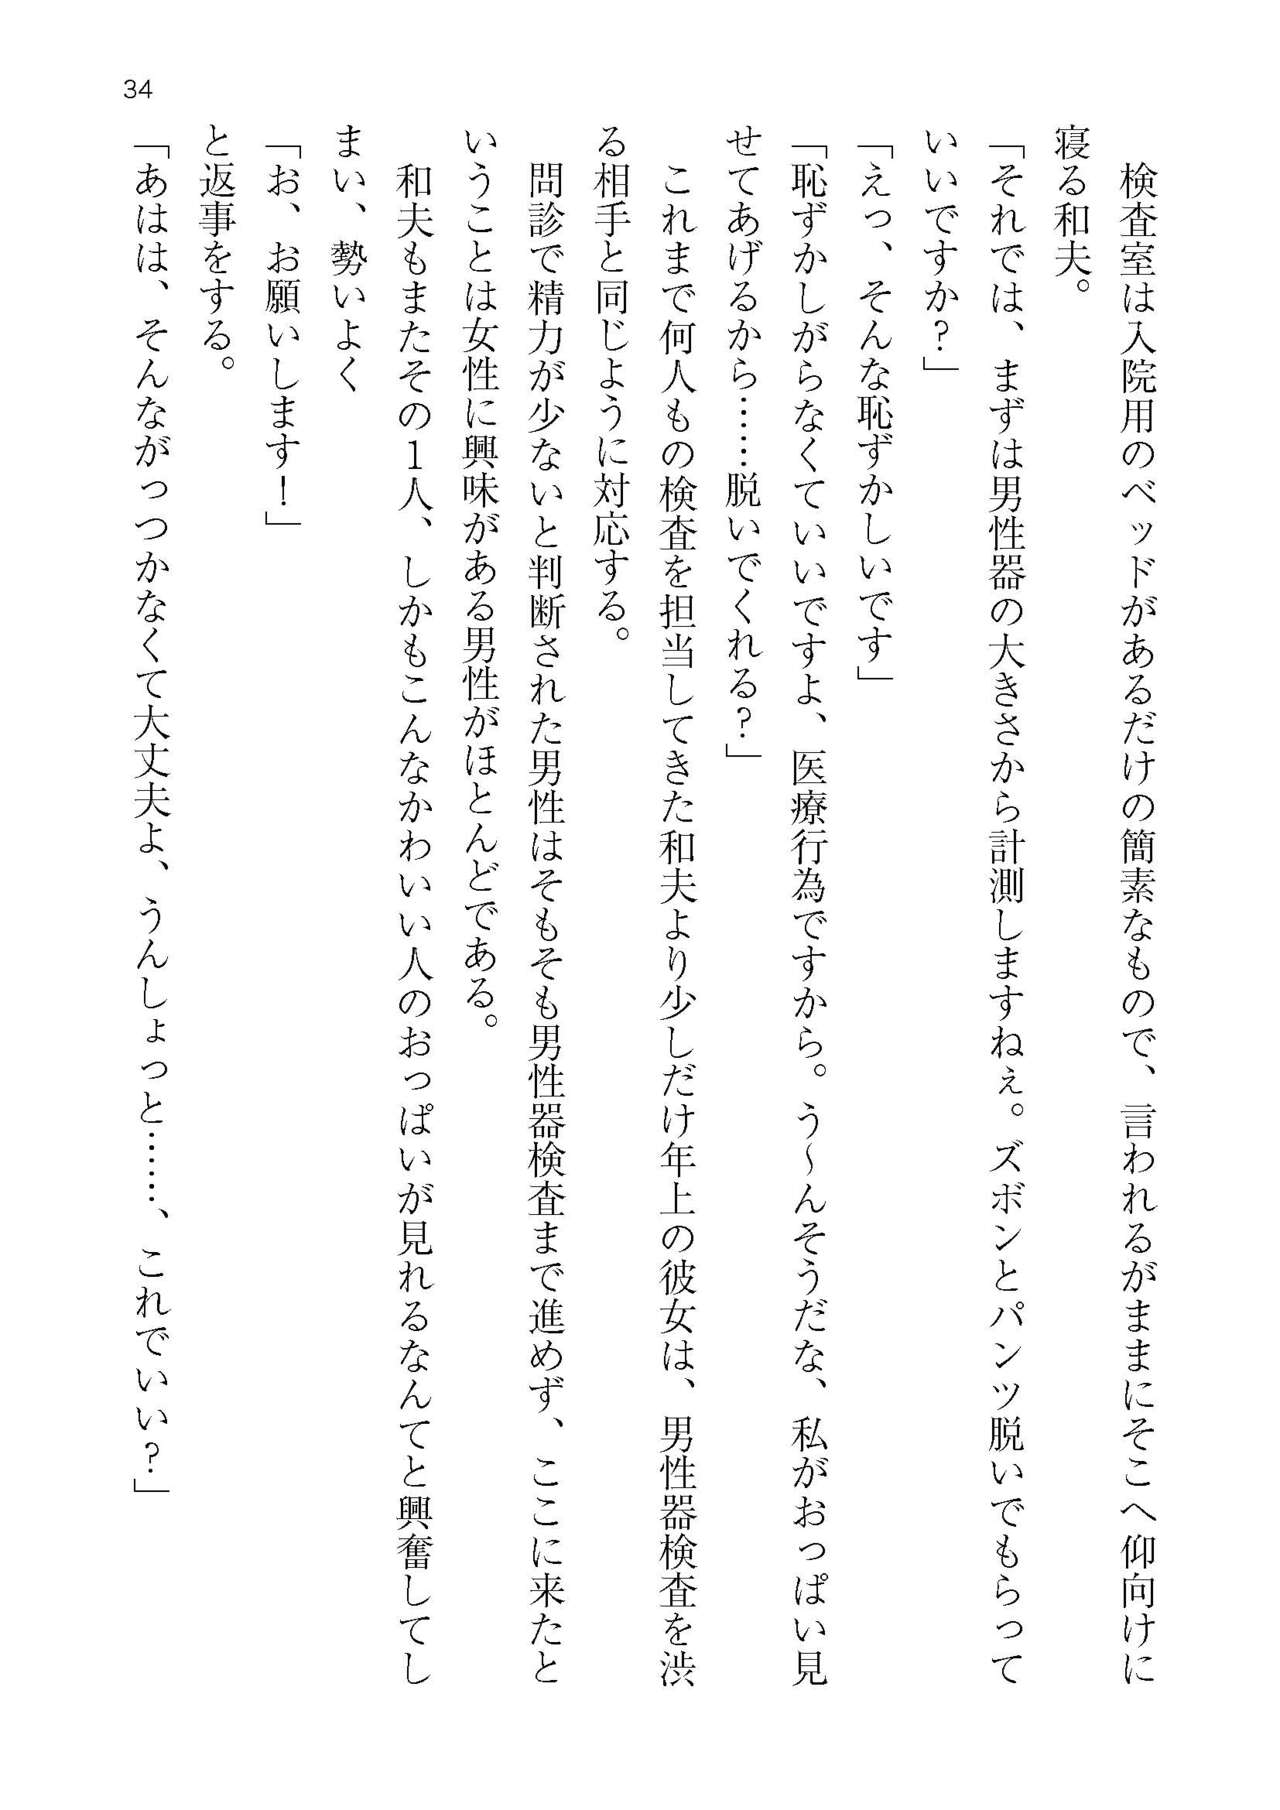 34
　検査室は入院用のベッドがあるだけの簡素なもので、言われるがままにそこへ仰向けに
寝る和夫。
「それでは、まずは男性器の大きさから計測しますねぇ。ズボンとパンツ脱いでもらって
いいですか？」
「えっ、そんな恥ずかしいです」
「恥ずかしがらなくていいですよ、医療行為ですから。う～んそうだな、私がおっぱい見
せてあげるから……脱いでくれる？」
　これまで何人もの検査を担当してきた和夫より少しだけ年上の彼女は、男性器検査を渋
る相手と同じように対応する。
　問診で精力が少ないと判断された男性はそもそも男性器検査まで進めず、ここに来たと
いうことは女性に興味がある男性がほとんどである。
　和夫もまたその１人、しかもこんなかわいい人のおっぱいが見れるなんてと興奮してし
まい、勢いよく
「お、お願いします！」
と返事をする。
「あはは、そんながっつかなくて大丈夫よ、うんしょっと……、これでいい？」